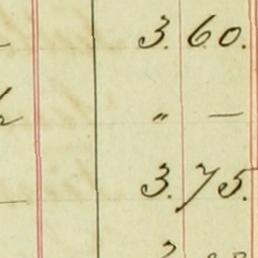 3. 60.
" —
3. 75.